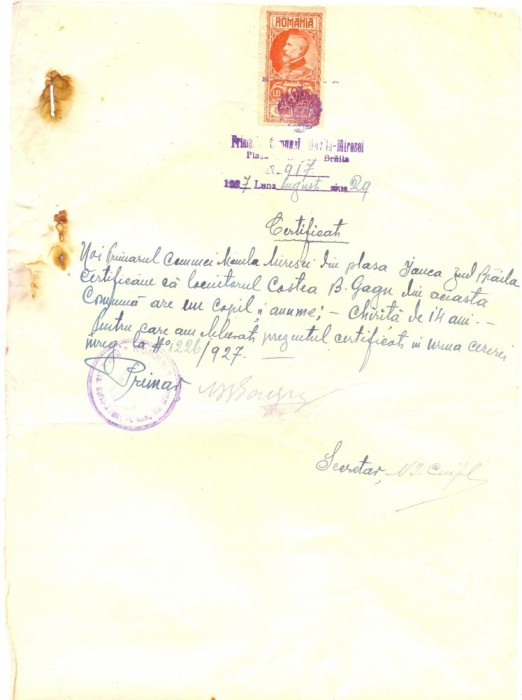 ROMANIA
LEI
Brăila
917
1927 Luna August ziua 29
Certificat
Noi Primarul Comunei Movila Miresei din plasa Ianca jud Brăila
certificăm că locuitorul Costea B. Gagu din aceasta
Comună are un copil, anume: – Chiriță de 14 ani. –
Pentru care am eliberat prezentul certificat in urma cererei
inreg. la No 1226/927. —
Primar
Secretar,